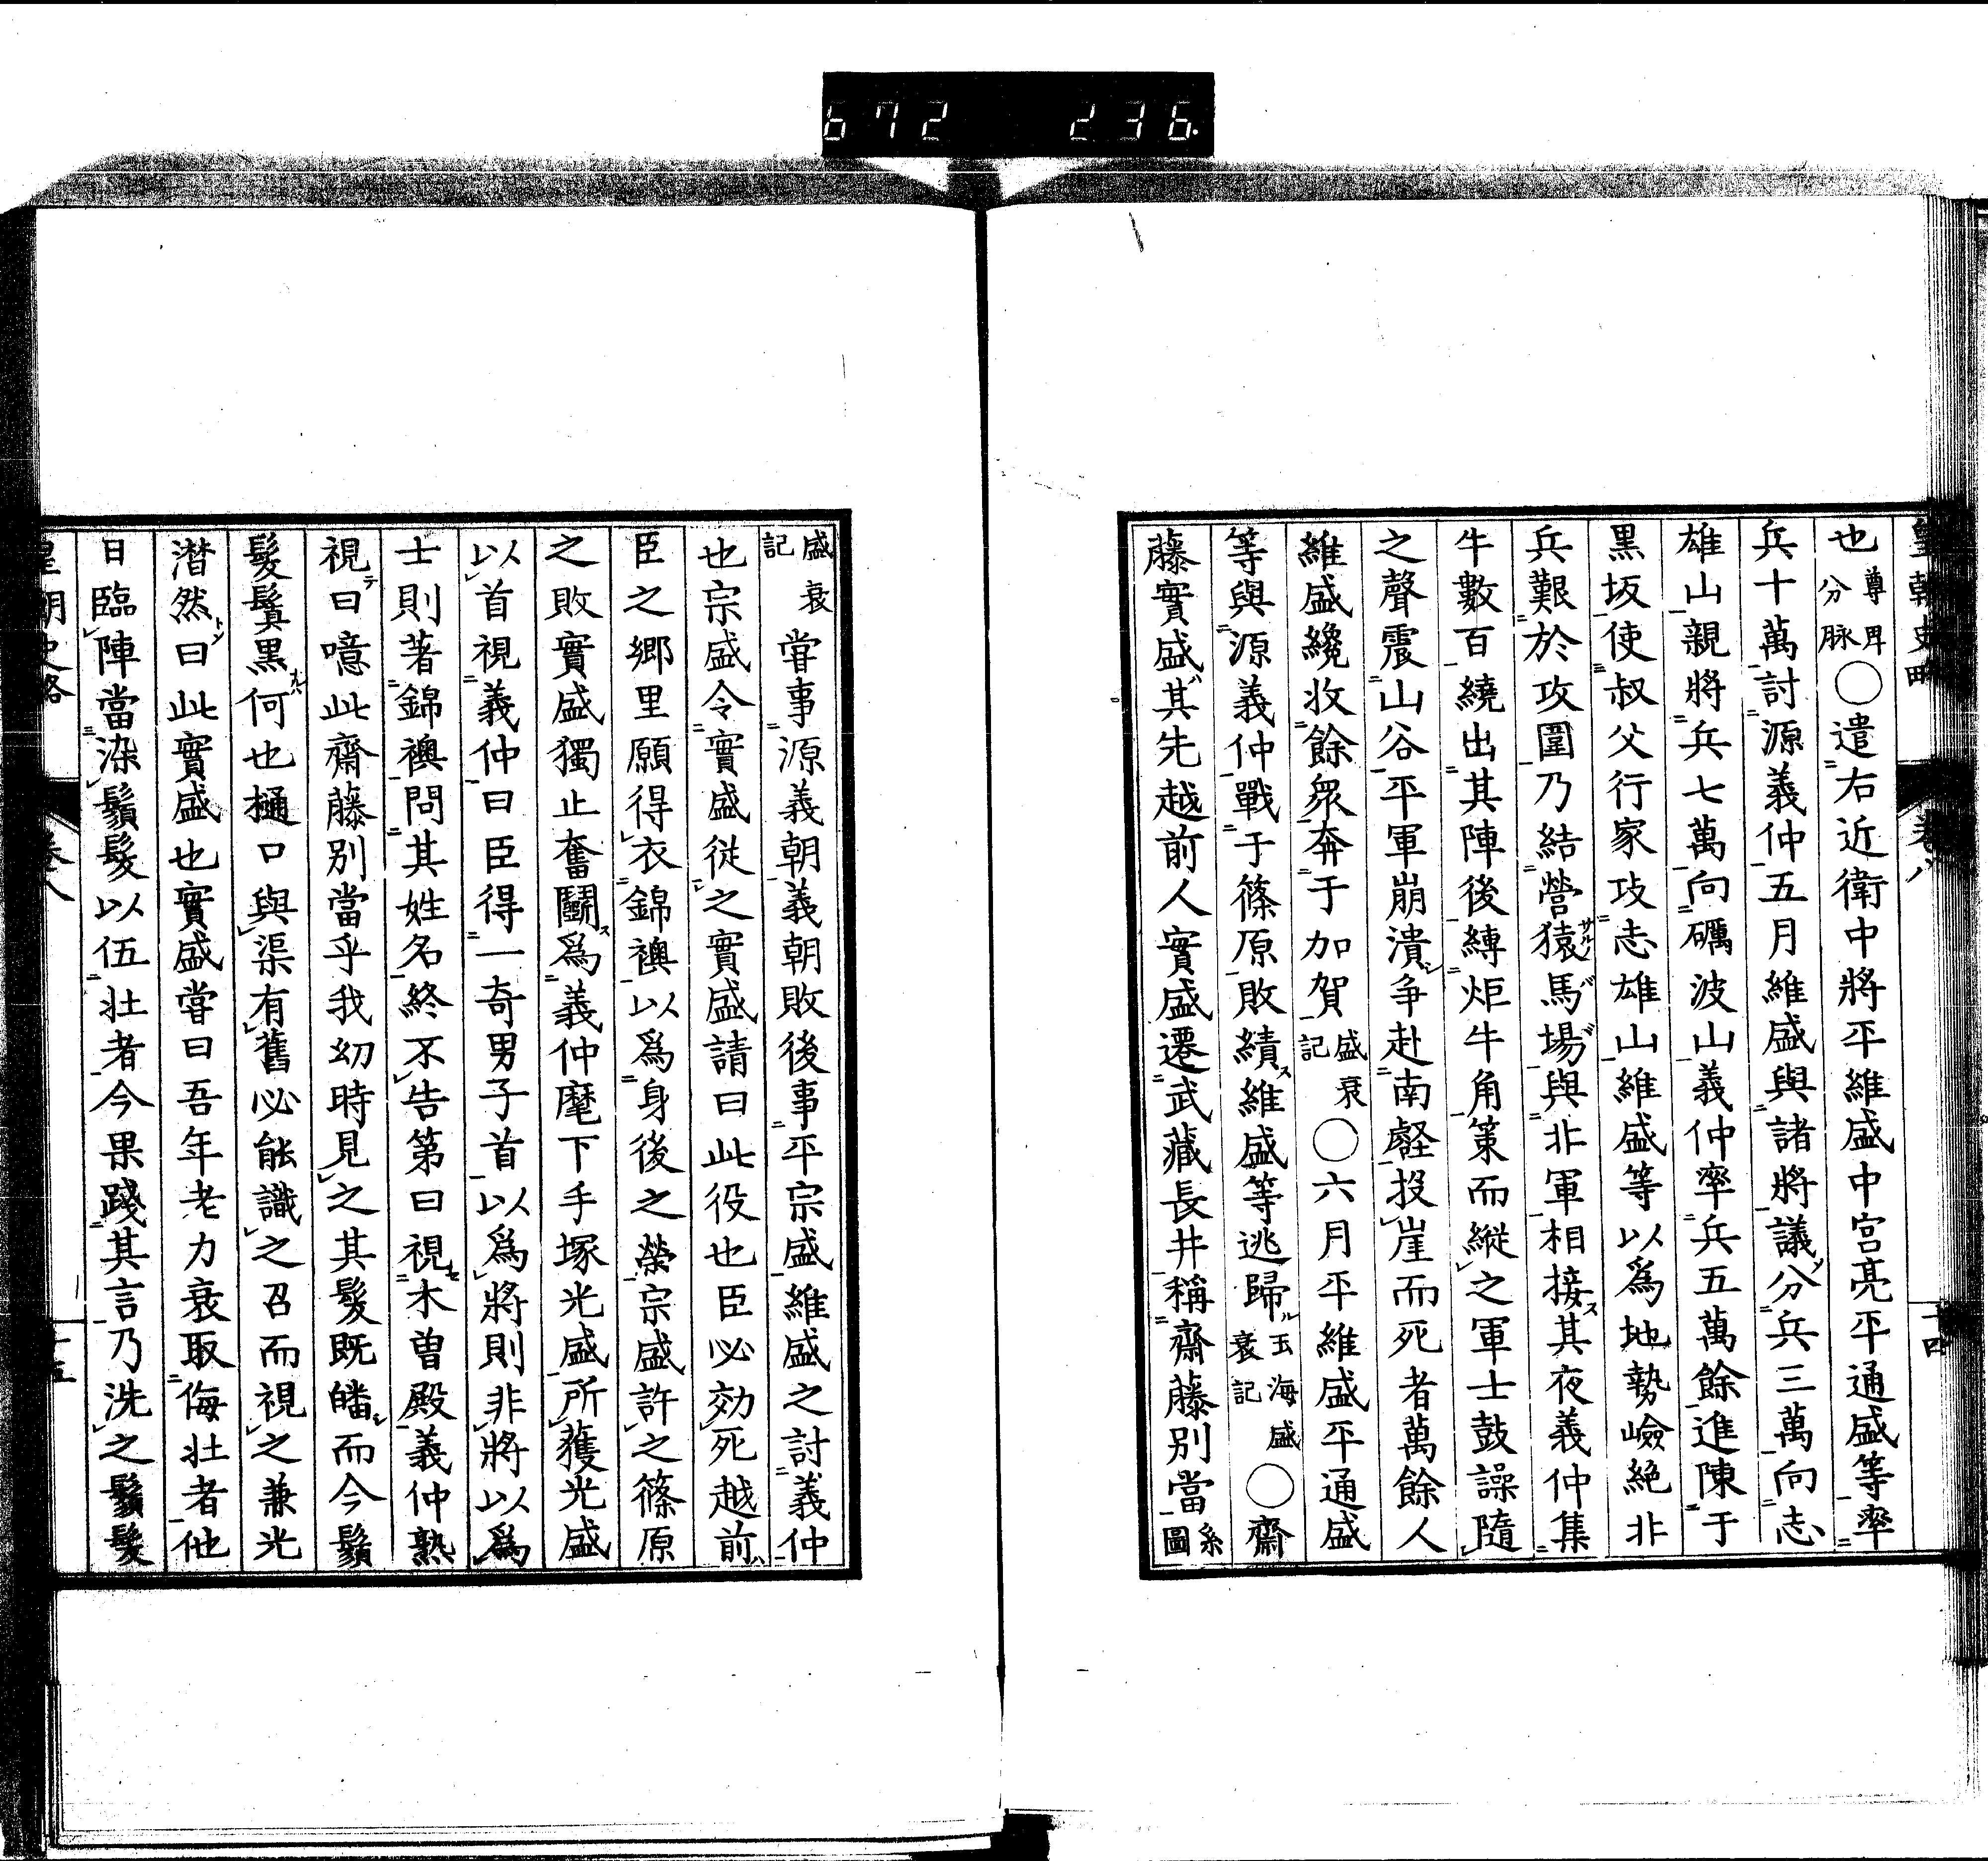 672 236
皇朝史畧 卷八 十四
也尊卑分脉○遣右近衛中將平維盛中宮亮平通盛等率
兵十萬討源義仲五月維盛與諸將議分兵三萬向志
雄山親將兵七萬向礪波山義仲率兵五萬餘進陳于
黒坂使叔父行家攻志雄山維盛等以爲地勢嶮絶非
兵艱於攻圍乃結營猿馬場與非軍相接其夜義仲集
牛數百繞出其陣後縛炬牛角策而縱之軍士鼓譟隨
之聲震山谷平軍崩潰争赴南壑投崖而死者萬餘人
維盛纔收餘衆奔于加賀盛衰記○六月平維盛平通盛
等與源義仲戰于篠原敗績維盛等逃歸玉海盛衰記○齋
藤實盛其先越前人實盛遷武藏長井稱齋藤別當系圖
盛衰記甞事源義朝義朝敗後事平宗盛維盛之討義仲
也宗盛令實盛從之實盛請曰此役也臣必効死越前
臣之郷里願得衣錦襖以爲身後之榮宗盛許之篠原
之敗實盛獨止奮鬪爲義仲麾下手塚光盛所獲光盛
以首視義仲曰臣得一奇男子首以爲將則非將以爲
士則著錦襖問其姓名終不告第曰視木曽殿義仲熟
視曰噫此齋藤別當乎我幼時見之其髮既皤而今鬚
髮鬒黒何也樋口與渠有舊必能識之召而視之兼光
潸然曰此實盛也實盛甞曰吾年老力衰取侮壯者他
日臨陣當染鬚髮以伍壯者今果踐其言乃洗之鬚髮
皇朝史略 卷八 十五